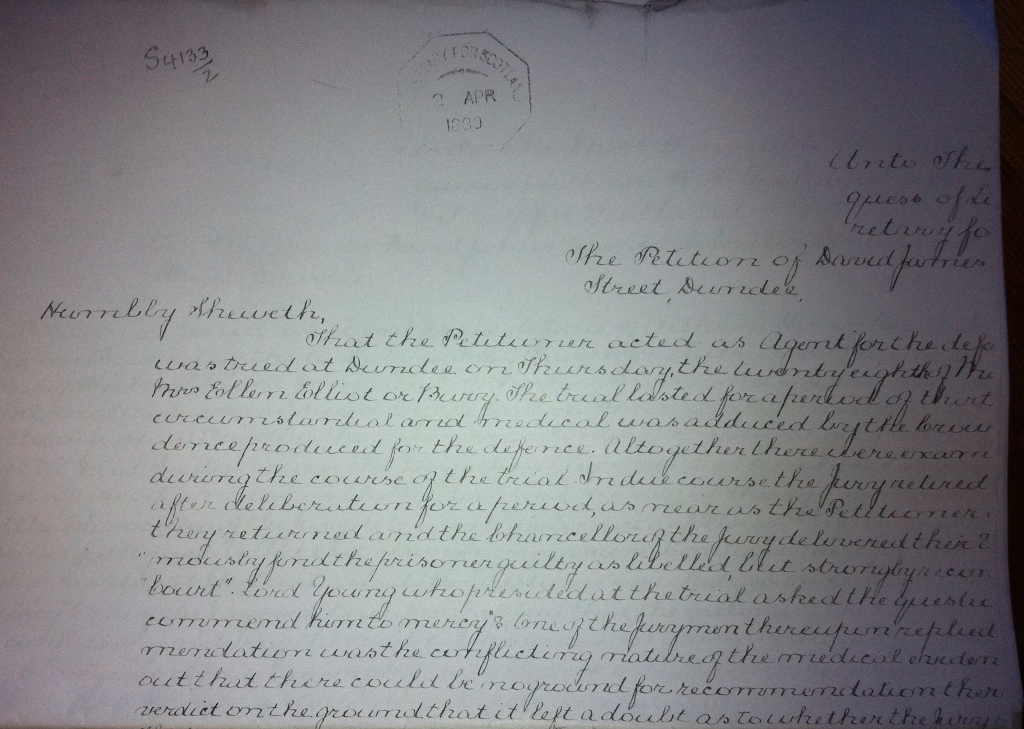 S4133/2
SECRETARY FOR SCOTLAND
2 APR
1889
Unto The
quess of Lo
retary fo
The Petition of David James
Street, Dundee,
Humbly Sheweth,
That the Petitioner acted as Agent for the defe
was tried at Dundee on Thursday, the twenty eighth of
Mrs Ellen Elliot or Bury. The trial lasted for a period of thirt
circumstantial and medical was adduced by the Crow
dence produced for the defence. Altogether there were exam
during the course of the trial. In due course the Jury retired
after deliberation for a period, as near as the Petitioner
they returned and the Chancellor of the Jury delivered their
"mously find the prisoner guilty as libelled, but strongly recom
"Court". Lord Young who presided at the trial asked the questio
commend him to mercy"? One of the Jurymen thereupon replied
mendation was the conflicting nature of the medical eviden
out that there could be no ground for recommendation ther
verdict on the ground that it left a doubt as to whether the Jury